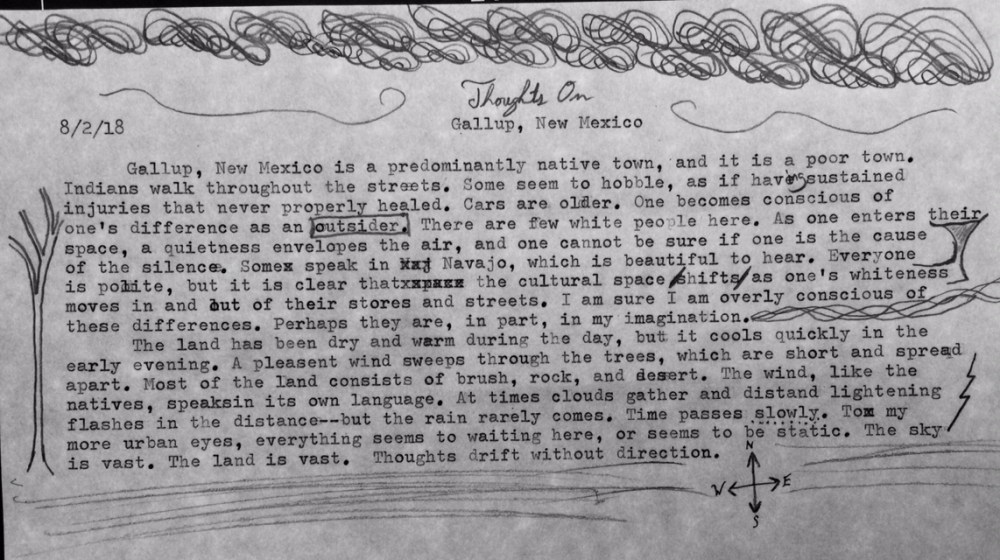 Thoughts On
8/2/18
Gallup, New Mexico
Gallup, New Mexico is a predominantly native town, and it is a poor town.
Indians walk throughout the streets. Some seem to hobble, as if having sustained
injuries that never properly healed. Cars are older. One becomes conscious of
one's difference as an outsider. There are few white people here. As one enters their
space, a quietness envelopes the air, and one cannot be sure if one is the cause
of the silence. Somex speak in xxj Navajo, which is beautiful to hear. Everyone
is polite, but it is clear thatxxpxxx the cultural space shifts as one's whiteness
moves in and out of their stores and streets. I am sure I am overly conscious of
these differences. Perhaps they are, in part, in my imagination.
The land has been dry and warm during the day, but it cools quickly in the
early evening. A pleasent wind sweeps through the trees, which are short and spread
apart. Most of the land consists of brush, rock, and desert. The wind, like the
natives, speaksin its own language. At times clouds gather and distand lightening
flashes in the distance--but the rain rarely comes. Time passes slowly. Tom my
more urban eyes, everything seems to waiting here, or seems to be static. The sky
is vast. The land is vast. Thoughts drift without direction.
N
W E
S